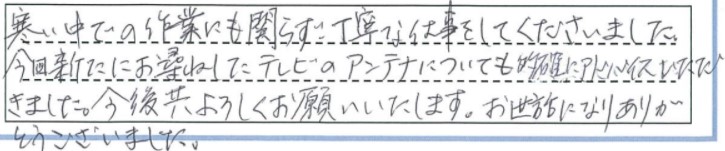 寒い中での作業にも関らず丁寧な仕事をしてくださいました。
今回新たにお尋ねしたテレビのアンテナについても的確にアドバイスいただ
きました。今後共よろしくお願いいたします。お世話になりありが
とうございました。